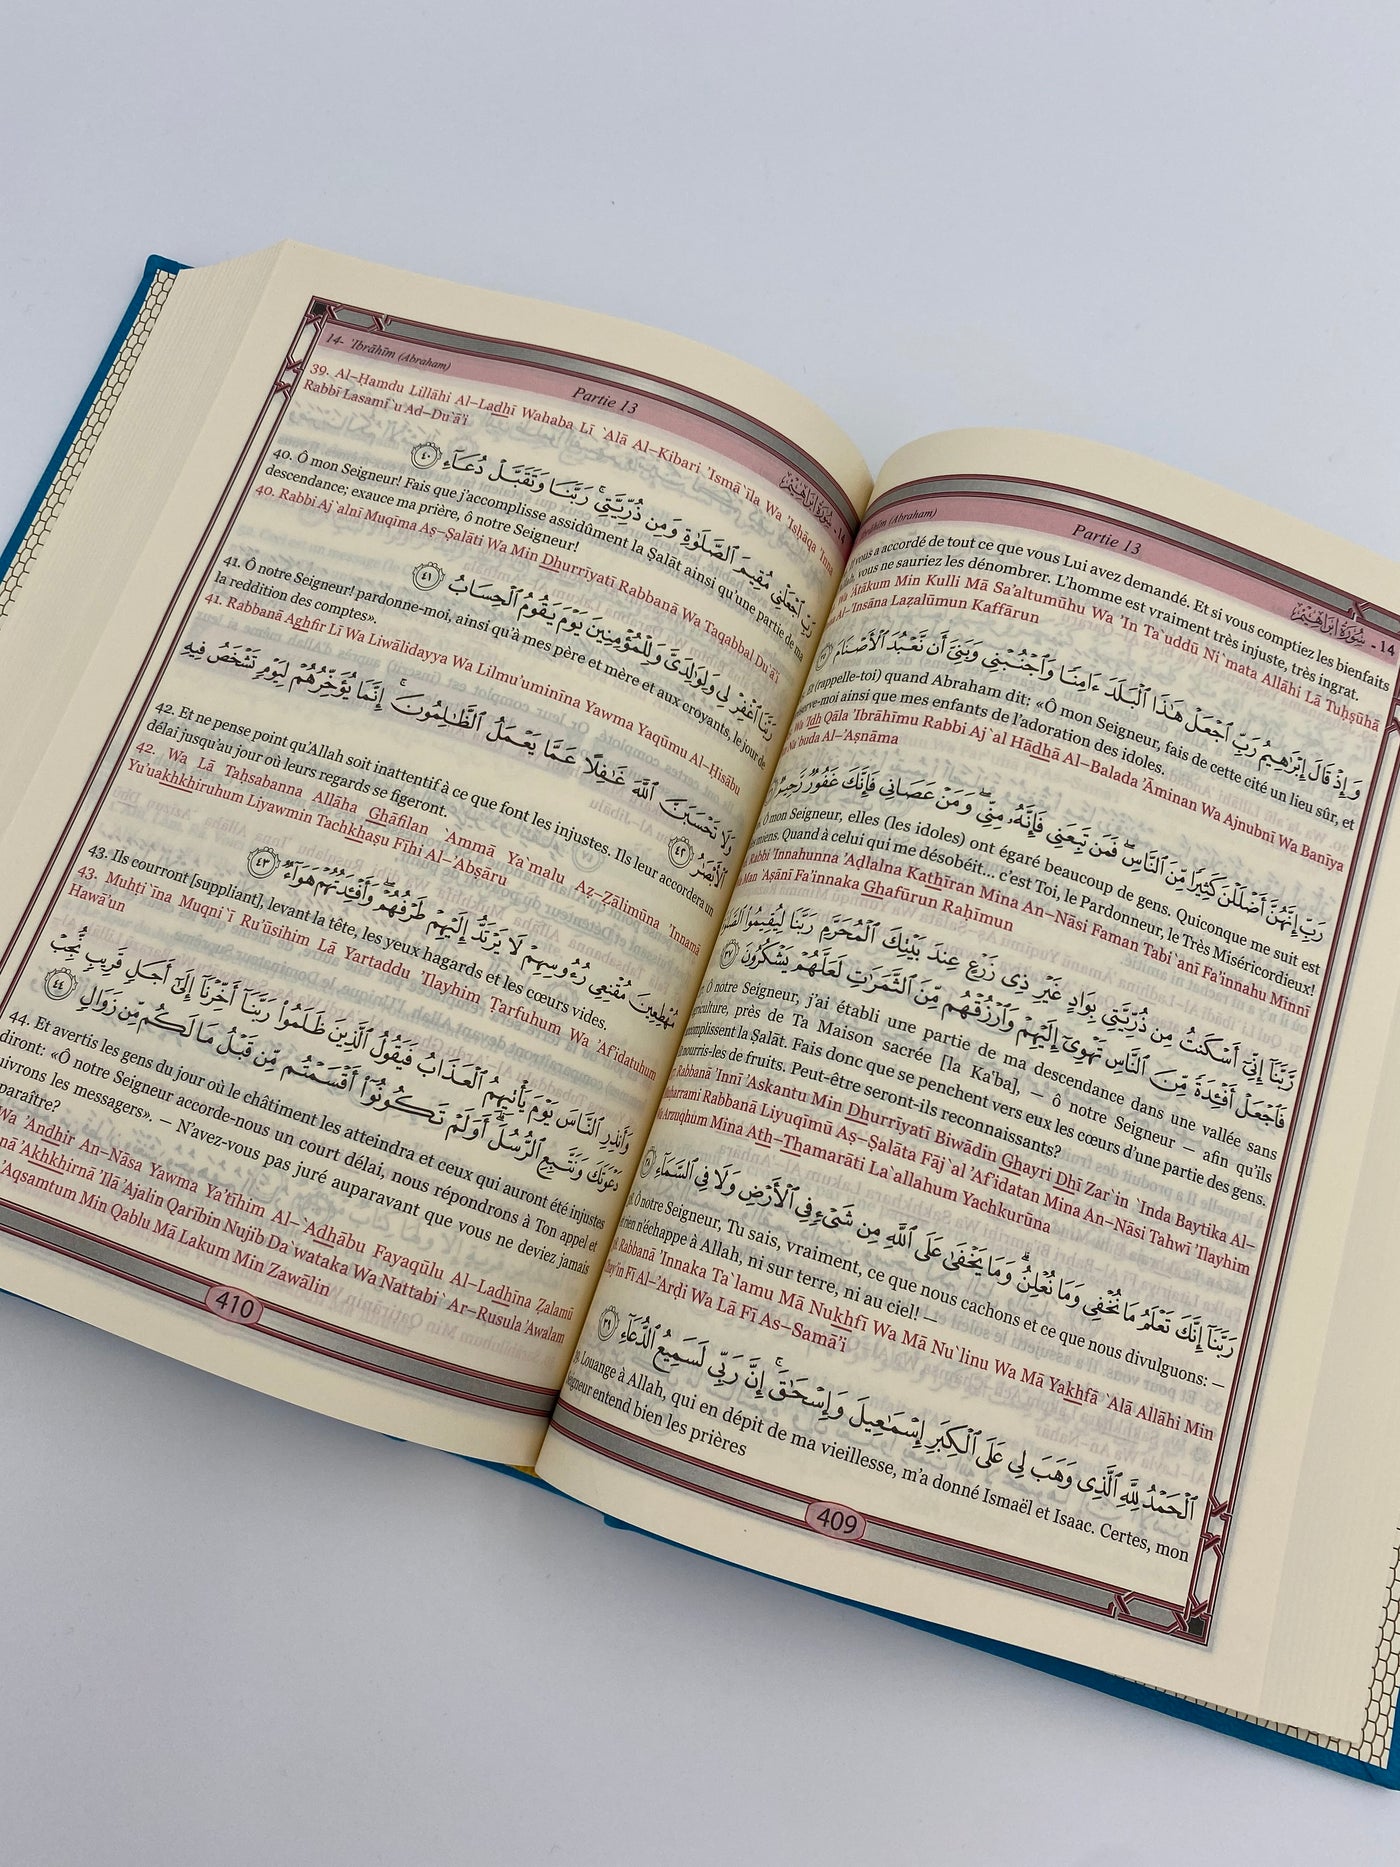 (Abraham)
Partie 13
سورة إبراهيم - 14
vous a accordé de tout ce que vous Lui avez demandé. Et si vous comptiez les bienfaits
vous ne sauriez les dénombrer. L'homme est vraiment très injuste, très ingrat.
Wa 'Ātākum Min Kulli Mā Sa'altumūhu Wa 'In Ta`uddū Ni`mata Allāhi Lā Tuḥṣūhā
Al-'Insāna Laẓalūmun Kaffārun
وَإِذْ قَالَ إِبْرَٰهِيمُ رَبِّ ٱجْعَلْ هَٰذَا ٱلْبَلَدَ ءَامِنًا وَٱجْنُبْنِى وَبَنِىَّ أَن نَّعْبُدَ ٱلْأَصْنَامَ
Et (rappelle-toi) quand Abraham dit: «Ô mon Seigneur, fais de cette cité un lieu sûr, et
ainsi que mes enfants de l'adoration des idoles.
Wa 'Idh Qāla 'Ibrāhīmu Rabbi Aj`al Hādhā Al-Balada 'Āminan Wa Ajnubnī Wa Banīya
Na`buda Al-'Aṣnāma
رَبِّ إِنَّهُنَّ أَضْلَلْنَ كَثِيرًا مِّنَ ٱلنَّاسِ فَمَن تَبِعَنِى فَإِنَّهُۥ مِنِّى وَمَنْ عَصَانِى فَإِنَّكَ غَفُورٌ رَّحِيمٌ
Ô mon Seigneur, elles (les idoles) ont égaré beaucoup de gens. Quiconque me suit est
miens. Quand à celui qui me désobéit... c'est Toi, le Pardonneur, le Très Miséricordieux!
Rabbi 'Innahunna 'Aḍlalna Kathīran Mina An-Nāsi Faman Tabi`anī Fa'innahu Minnī
Man `Aṣānī Fa'innaka Ghafūrun Raḥīmun
رَّبَّنَآ إِنِّىٓ أَسْكَنتُ مِن ذُرِّيَّتِى بِوَادٍ غَيْرِ ذِى زَرْعٍ عِندَ بَيْتِكَ ٱلْمُحَرَّمِ رَبَّنَا لِيُقِيمُوا۟ ٱلصَّلَوٰةَ
فَٱجْعَلْ أَفْـِٔدَةً مِّنَ ٱلنَّاسِ تَهْوِىٓ إِلَيْهِمْ وَٱرْزُقْهُم مِّنَ ٱلثَّمَرَٰتِ لَعَلَّهُمْ يَشْكُرُونَ ٣٧
Ô notre Seigneur, j'ai établi une partie de ma descendance dans une vallée sans
agriculture, près de Ta Maison sacrée [la Ka'ba], — ô notre Seigneur — afin qu'ils
accomplissent la Ṣalāt. Fais donc que se penchent vers eux les cœurs d'une partie des gens.
nourris-les de fruits. Peut-être seront-ils reconnaissants?
Rabbanā 'Innī 'Askantu Min Dhurrīyatī Biwādin Ghayri Dhī Zar`in `Inda Baytika Al-
Muḥarrami Rabbanā Liyuqīmū Aṣ-Ṣalāta Fāj`al 'Af'idatan Mina An-Nāsi Tahwī 'Ilayhim
Wa Arzuqhum Mina Ath-Thamarāti La`allahum Yachkurūna
رَبَّنَآ إِنَّكَ تَعْلَمُ مَا نُخْفِى وَمَا نُعْلِنُ وَمَا يَخْفَىٰ عَلَى ٱللَّهِ مِن شَىْءٍ فِى ٱلْأَرْضِ وَلَا فِى ٱلسَّمَآءِ ٣٨
Ô notre Seigneur, Tu sais, vraiment, ce que nous cachons et ce que nous divulguons: —
et rien n'échappe à Allah, ni sur terre, ni au ciel! —
Rabbanā 'Innaka Ta`lamu Mā Nukhfī Wa Mā Nu`linu Wa Mā Yakhfá `Alá Allāhi Min
Chay'in Fī Al-'Arḍi Wa Lā Fī As-Samā'i
ٱلْحَمْدُ لِلَّهِ ٱلَّذِى وَهَبَ لِى عَلَى ٱلْكِبَرِ إِسْمَٰعِيلَ وَإِسْحَٰقَ إِنَّ رَبِّى لَسَمِيعُ ٱلدُّعَآءِ ٣٩
Louange à Allah, qui en dépit de ma vieillesse, m'a donné Ismaël et Isaac. Certes, mon
Seigneur entend bien les prières
409
14- 'Ibrāhīm (Abraham)
Partie 13
سورة إبراهيم - 14
39. Al-Ḥamdu Lillāhi Al-Ladhī Wahaba Lī `Alá Al-Kibari 'Ismā`īla Wa 'Isḥāqa 'Inna
Rabbī Lasamī`u Ad-Du`ā'i
رَبِّ ٱجْعَلْنِى مُقِيمَ ٱلصَّلَوٰةِ وَمِن ذُرِّيَّتِى رَبَّنَا وَتَقَبَّلْ دُعَآءِ ٤٠
40. Ô mon Seigneur! Fais que j'accomplisse assidûment la Ṣalāt ainsi qu'une partie de ma
descendance; exauce ma prière, ô notre Seigneur!
40. Rabbi Aj`alnī Muqīma Aṣ-Ṣalāti Wa Min Dhurrīyatī Rabbanā Wa Taqabbal Du`ā'i
رَبَّنَا ٱغْفِرْ لِى وَلِوَٰلِدَىَّ وَلِلْمُؤْمِنِينَ يَوْمَ يَقُومُ ٱلْحِسَابُ ٤١
41. Ô notre Seigneur! pardonne-moi, ainsi qu'à mes père et mère et aux croyants, le jour de
la reddition des comptes».
41. Rabbanā Aghfir Lī Wa Liwālidayya Wa Lilmu'uminīna Yawma Yaqūmu Al-Ḥisābu
وَلَا تَحْسَبَنَّ ٱللَّهَ غَٰفِلًا عَمَّا يَعْمَلُ ٱلظَّٰلِمُونَ إِنَّمَا يُؤَخِّرُهُمْ لِيَوْمٍ تَشْخَصُ فِيهِ
ٱلْأَبْصَٰرُ ٤٢
42. Et ne pense point qu'Allah soit inattentif à ce que font les injustes. Ils leur accordera un
délai jusqu'au jour où leurs regards se figeront.
42. Wa Lā Taḥsabanna Allāha Ghāfilan `Ammā Ya`malu Aẓ-Ẓālimūna 'Innamā
Yu'uakhkhiruhum Liyawmin Tachkhaṣu Fīhi Al-'Abṣāru
مُهْطِعِينَ مُقْنِعِى رُءُوسِهِمْ لَا يَرْتَدُّ إِلَيْهِمْ طَرْفُهُمْ وَأَفْـِٔدَتُهُمْ هَوَآءٌ ٤٣
43. Ils courront [suppliant], levant la tête, les yeux hagards et les cœurs vides.
43. Muhṭi`īna Muqni`ī Ru'ūsihim Lā Yartaddu 'Ilayhim Ṭarfuhum Wa 'Af'idatuhum
Hawā'un
وَأَنذِرِ ٱلنَّاسَ يَوْمَ يَأْتِيهِمُ ٱلْعَذَابُ فَيَقُولُ ٱلَّذِينَ ظَلَمُوا۟ رَبَّنَآ أَخِّرْنَآ إِلَىٰٓ أَجَلٍ قَرِيبٍ نُّجِبْ
دَعْوَتَكَ وَنَتَّبِعِ ٱلرُّسُلَ أَوَلَمْ تَكُونُوٓا۟ أَقْسَمْتُم مِّن قَبْلُ مَا لَكُم مِّن زَوَالٍ ٤٤
44. Et avertis les gens du jour où le châtiment les atteindra et ceux qui auront été injustes
diront: «Ô notre Seigneur accorde-nous un court délai, nous répondrons à Ton appel et
suivrons les messagers». — N'avez-vous pas juré auparavant que vous ne deviez jamais
disparaître?
Wa 'Andhir An-Nāsa Yawma Ya'tīhim Al-`Adhābu Fayaqūlu Al-Ladhīna Ẓalamū
'Akhkhirnā 'Ilá Ajalin Qarībin Nujib Da`wataka Wa Nattabi` Ar-Rusula 'Awalam
'Aqsamtum Min Qablu Mā Lakum Min Zawālin
410